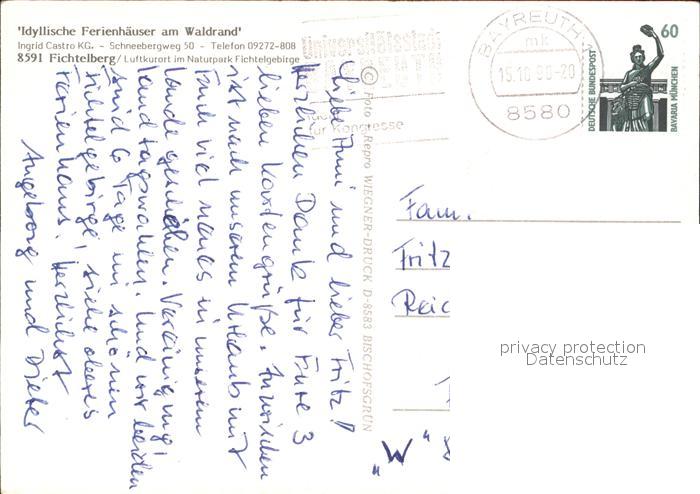 'Idyllische Ferienhäuser am Waldrand'
Ingrid Castro KG. – Schneebergweg 50 – Telefon 09272-808
8591 Fichtelberg / Luftkurort im Naturpark Fichtelgebirge
Universitätsstadt
für Kongresse
BAYREUTH 1
mk
15.10.90-20
8580
60
DEUTSCHE BUNDESPOST
BAVARIA MÜNCHEN
© Foto u. Repro WIEGNER-DRUCK D-8583 BISCHOFSGRÜN
Liebe Anni und lieber Fritz!
Herzlichen Dank für Eure 3
lieben Kartengrüße. Inzwischen
ist nach unserem Urlaub mit
Euch viel neues in unserem
Lande geschehen. Vereinigung!
Landtagswahlen. Und wir beiden
sind 6 Tage im schönen
Fichtelgebirge, siehe oberes
Ferienhaus. Herzlichst
Angeborg und Dieter
Fam.
Fritz
Reic
"W"
privacy protection
Datenschutz